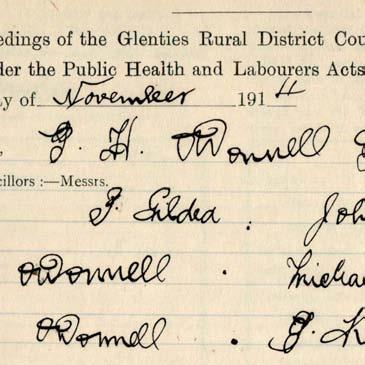 edings of the Glenties Rural District Cou
der the Public Health and Labourers Acts
y of November 1914
, P. H. O'Donnell
cillors :—Messrs.
P. Gildea . Joh
O'Donnell . Micha
O'Donnell .